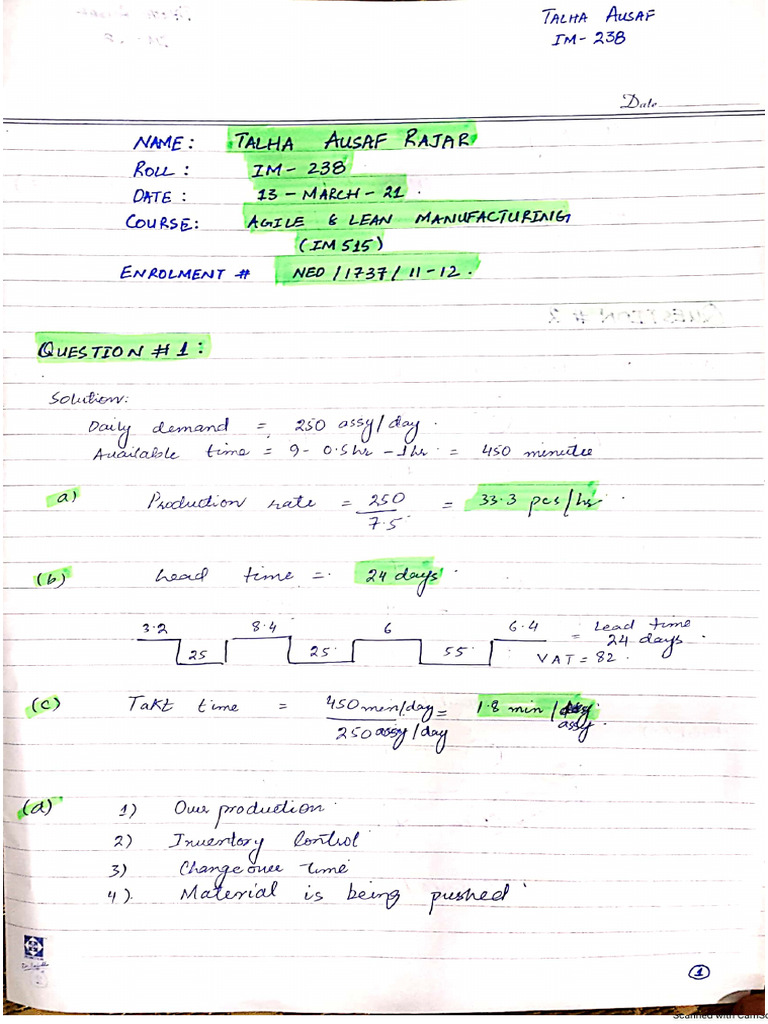 TALHA AUSAF
IM-238
Date
NAME: TALHA AUSAF RAJAR
ROLL: IM-238
DATE: 13-MARCH-21.
COURSE: AGILE & LEAN MANUFACTURING
(IM515)
ENROLMENT # NED/1737/11-12.
QUESTION # 2
QUESTION #1:
Solution:
Daily demand = 250 assy/day.
Available time = 9-0.5hr-1hr = 450 minutes
a) Production rate = 250/7.5 = 33.3 pcs/hr.
(b) Lead time =. 24 days.
3.2 8.4 6 6.4 = Lead time
24 days.
25 25 55 VAT = 82.
(c) Takt time = 450 men/day / 250 assy/day = 1.8 min/
assy.
(d) 1) Over production.
2) Inventory control
3) Changeover time
4). Material is being pushed.
1
Scanned with CamSc